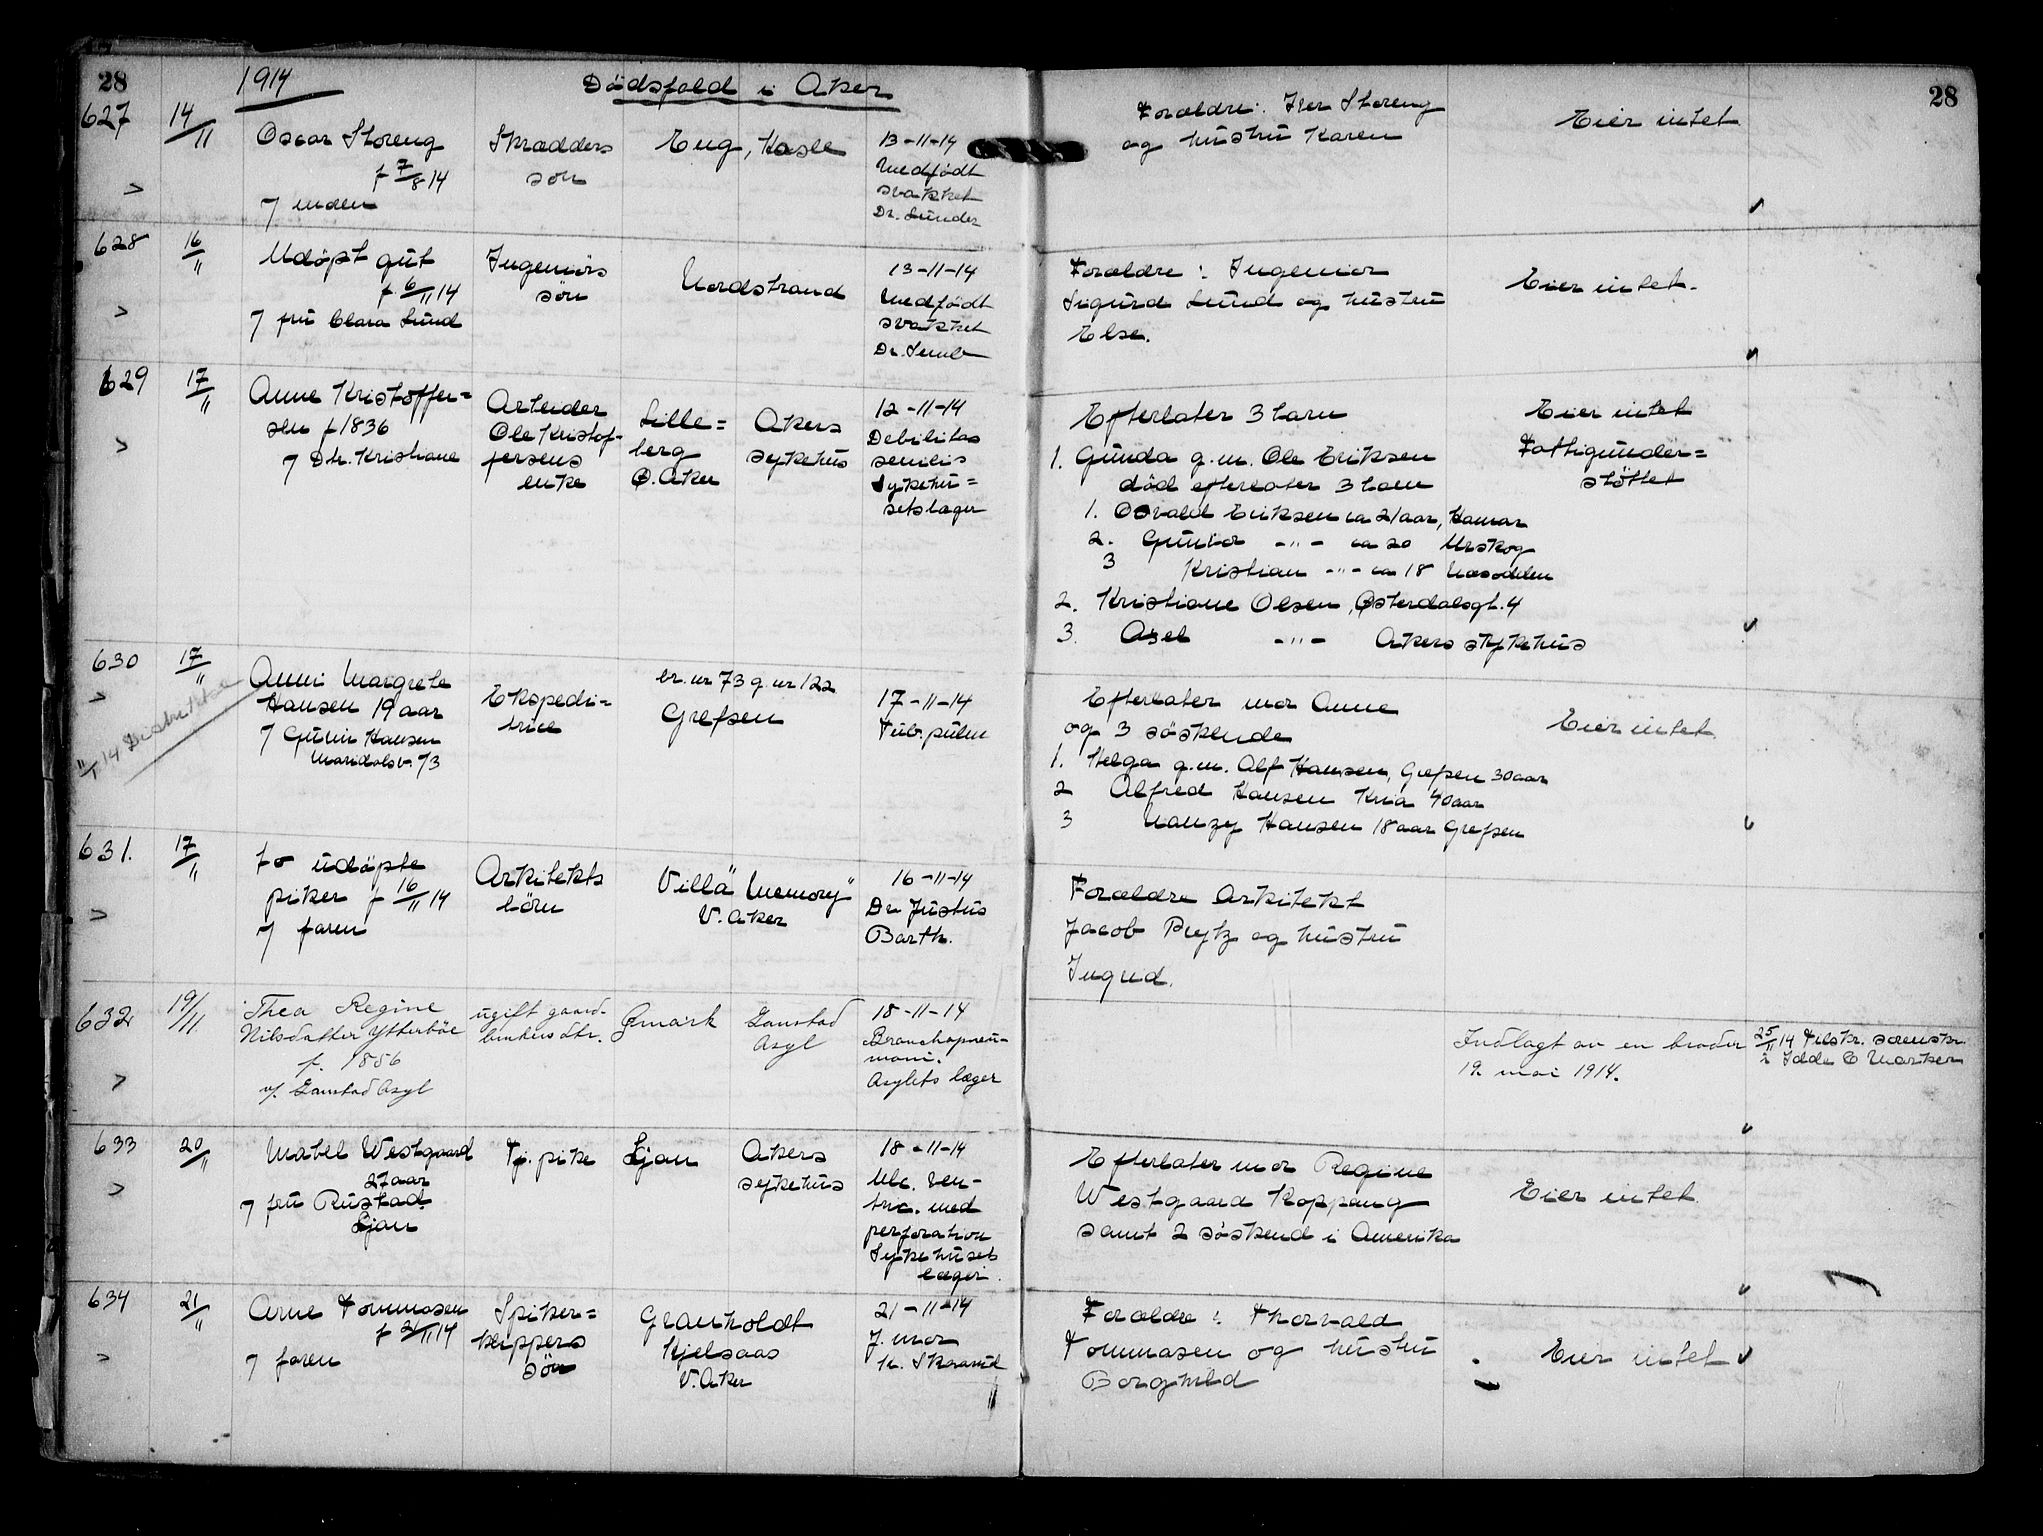 28
1914
Dödsfald i Aker
28
627
14/11
Oscar Storeng
f 7/8 14
7 moren
Skrædders
sön
Eng, Hasle
13-11-14
Medfödt
svakhet
Dr. Sunder
Forældre: Iver Storeng
og hustru Karen
Eier intet
628
16/11
Udöpt gut
f. 6/11 14
7 fru Clara Lund
Ingeniörs
sön
Nordstrand
13-11-14
Medfödt
svakhet
Dr. Semb
Forældre: Ingeniör
Sigurd Lund og hustru
Else.
Eier intet.
629
17/11
Anne Kristoffer=
sen f 1836
7 Dtr. Kristiane
Arbeider
Ole Kristof-
fersens
enke
Lille=
berg
Ö. Aker
Akers
sykehus
12-11-14
Debilitas
senilis
Sykehu=
setslæger
Efterlater 3 barn
1. Gunda g.m. Ole Eriksen
död efterlater 3 barn
1. Osvald Eriksen ca 21 aar, Hamar
2. Gunvor -"- ca 20 Urskog
3 Kristian -"- ca 18 Næsodden
2. Kristiane Olsen, Østerdalsgt. 4
3. Axel -"- Akers sykehus
Eier intet
Fattigunder=
støttet
630
17/11
Anni Margrete
Hansen 19 aar
7 Gunvi Hansen
Maridalsv. 73
Ekspedi=
trice
br. nr 73 g. nr 122
Grefsen
17-11-14
Tub. pulm
Efterlater mor Anne
og 3 söskende
1. Helga g.m. Alf Hansen, Grefsen 30 aar
2 Alfred Hansen Kria 40 aar
3 Nanzy Hansen 18 aar Grefsen
Eier intet.
631.
17/11
to udöpte
piker f 16/11 14
7 faren
Arkitekts
börn
Villa "Memory"
V. Aker
16-11-14
Dr Justus
Barth.
Forældre Arkitekt
Jacob Prytz og hustru
Ingrid.
632
19/11
Thea Regine
Nilsdatter Ytterböe
f. 1856
v/. Gaustad Asyl
ugift gaard-
brukers dtr.
Øymark
Gaustad
Asyl
18-11-14
Bronchopneu-
moni.
Asylets læger
Indlagt av en broder
19. mai 1914.
25/11 14 Tilskr. sorenskr.
i Idde & Marker
633
20/11
Mabel Westgaard
27 aar
7 fru Rustad
Ljan
Tj. pike
Ljan
Akers
sykehus
18-11-14
Ulc. ven-
tric. med
perforation
Sykehusets
læger.
Efterlater mor Regine
Westgaard Koppang
samt 2 söskend i Amerika
Eier intet.
634
21/11
Arne Tommasen
f 21/11 14
7 faren
Spiker=
klippers
sön
Granholdt
Kjelsaas
V. Aker
21-11-14
J. mor
K. Skaarud
Forældre: Thorvald
Tommasen og hustru
Borghild
Eier intet